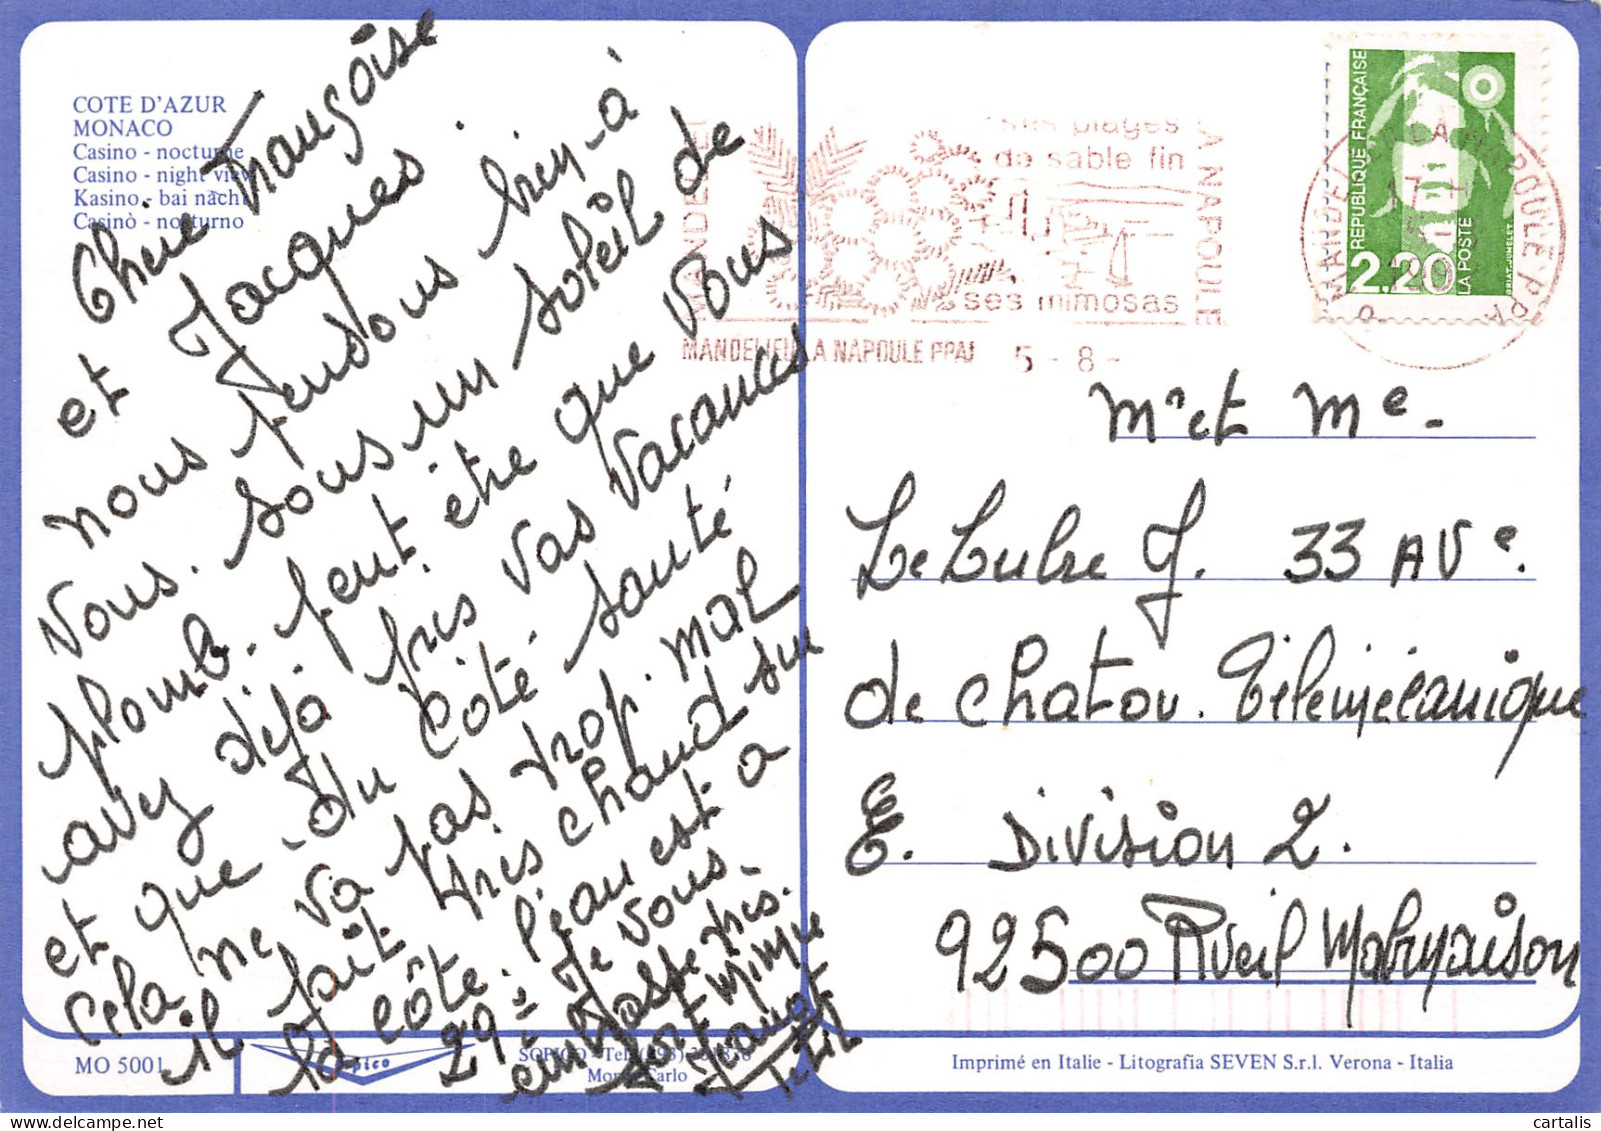 COTE D'AZUR
MONACO
Casino - nocturne
Casino - night view
Kasino - bai nacht
Casinò - notturno
Chère Françoise
et Jacques.
nous pensons bien à
Vous. sous un soleil de
plomb. peut être que Vous
avez déjà pris vos Vacances
et que du Côté santé
cela ne va pas trop mal
il fait très chaud sur
la côte. l'eau est a
29° Je vous
embrasse
MANDELIEU LA NAPOULE
ses plages
de sable fin
ses mimosas
MANDELIEU LA NAPOULE PPAL 5 - 8 -
MANDELIEU LA NAPOULE PPAL
REPUBLIQUE FRANÇAISE
2,20
LA POSTE
BRIAT-JUMELET
Mr et Me.
Le Lubre J. 33 AVe.
de Chatou. Télémécanique
E. Division 2.
92500 Rueil Malmaison
MO 5001
Sopico
SOPICO - Tel. (93)
Monte-Carlo
Imprimé en Italie - Litografia SEVEN S.r.l. Verona - Italia
cartalis